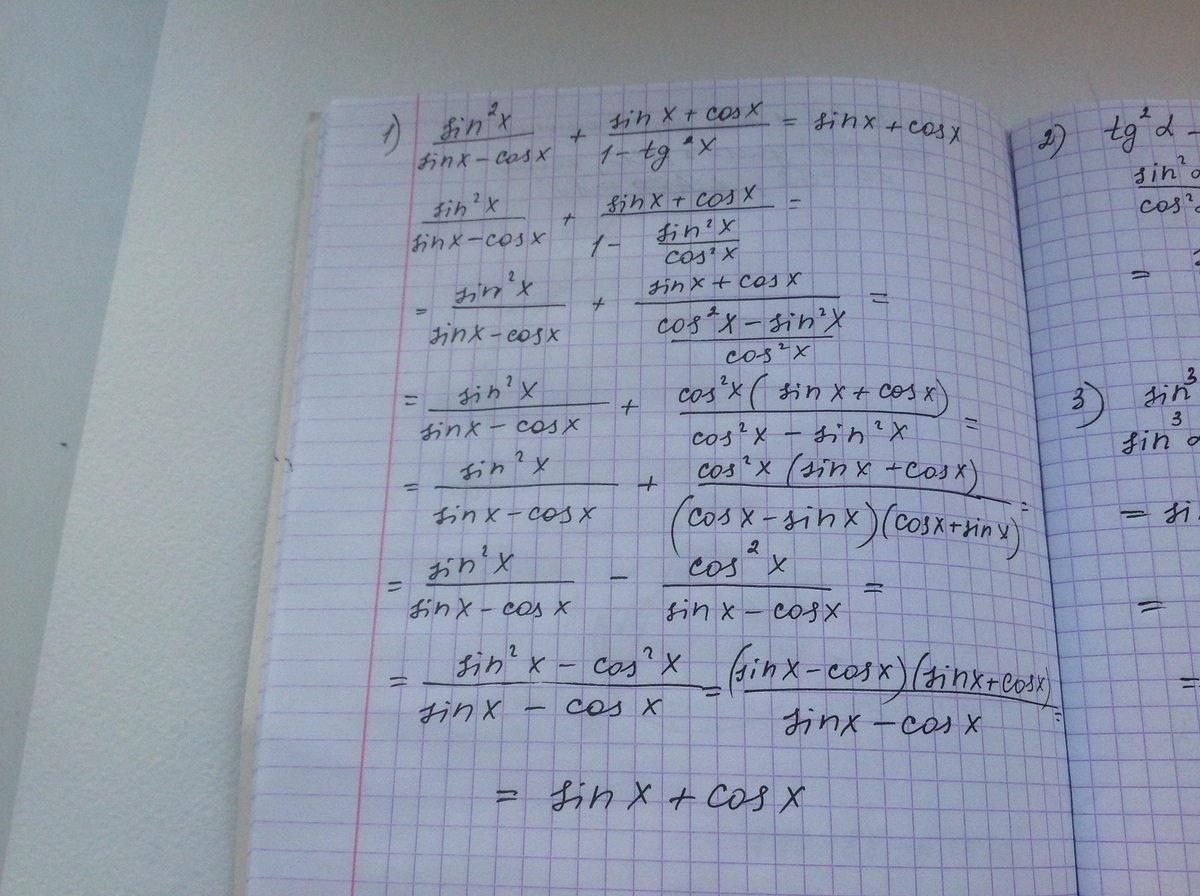 1) sin²x / (sinx − cosx) + (sinx + cosx) / (1 − tg²x) = sinx + cosx
sin²x / (sinx − cosx) + (sinx + cosx) / (1 − sin²x / cos²x) =
= sin²x / (sinx − cosx) + (sinx + cosx) / ((cos²x − sin²x) / cos²x) =
= sin²x / (sinx − cosx) + cos²x(sinx + cosx) / (cos²x − sin²x) =
= sin²x / (sinx − cosx) + cos²x(sinx + cosx) / ((cosx − sinx)(cosx + sinx)) =
= sin²x / (sinx − cosx) − cos²x / (sinx − cosx) =
= (sin²x − cos²x) / (sinx − cosx) = (sinx − cosx)(sinx + cosx) / (sinx − cosx) =
= sinx + cosx
2) tg²α −
sin²α / cos²
=
3) sin³
sin³α
= si
=
=